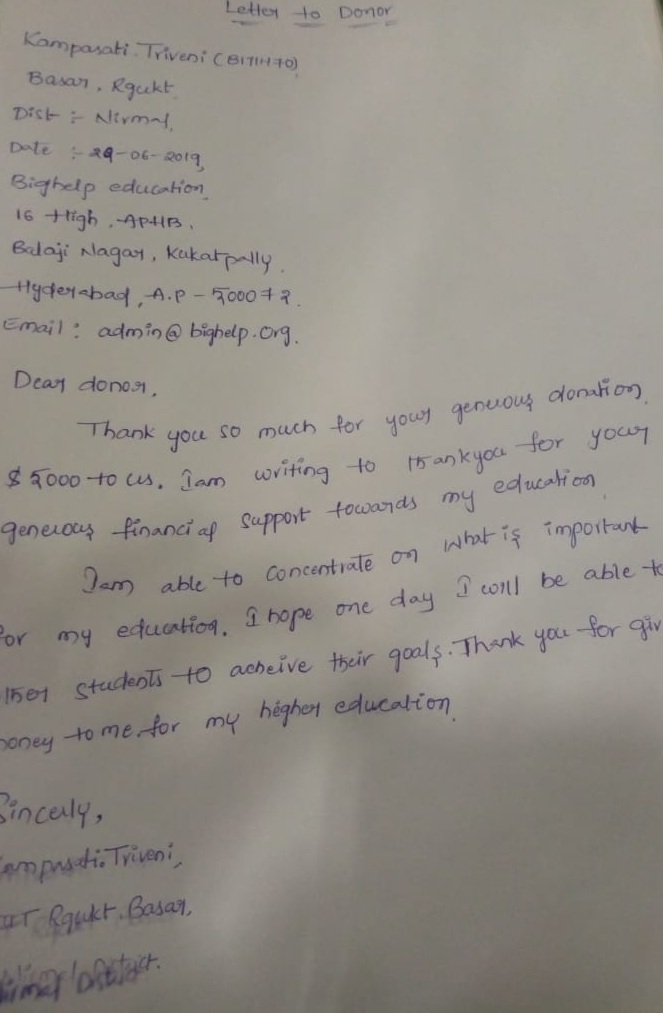 Letter to Donor
Kampasati.Triveni (B171470)
Basar, Rgukt.
Dist :- Nirmal,
Date :- 29-06-2019,
Bighelp education,
16 High, APHB,
Balaji Nagar, Kukatpally,
Hyderabad, A.P - 500072.
Email: admin@bighelp.org.
Dear donor,
Thank you so much for your generous donation,
$ 5000 to us. I am writing to thankyou for your
generous financial support towards my education,
I am able to concentrate on what is important
for my education. I hope one day I will be able to
ther students to acheive their goals. Thank you for giv
oney to me for my higher education,
Sincerly,
Kampasati.Triveni,
IIT Rgukt, Basar,
Nirmal District.